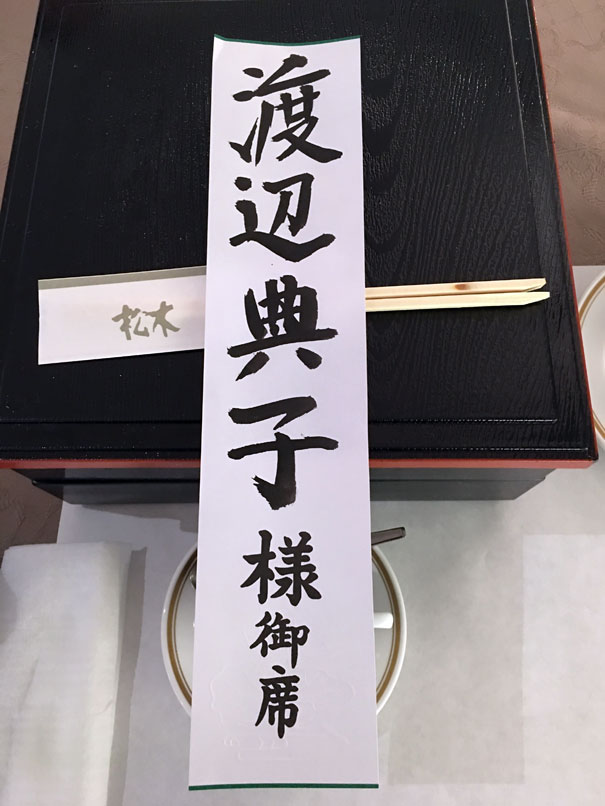 渡辺典子様御席
松木